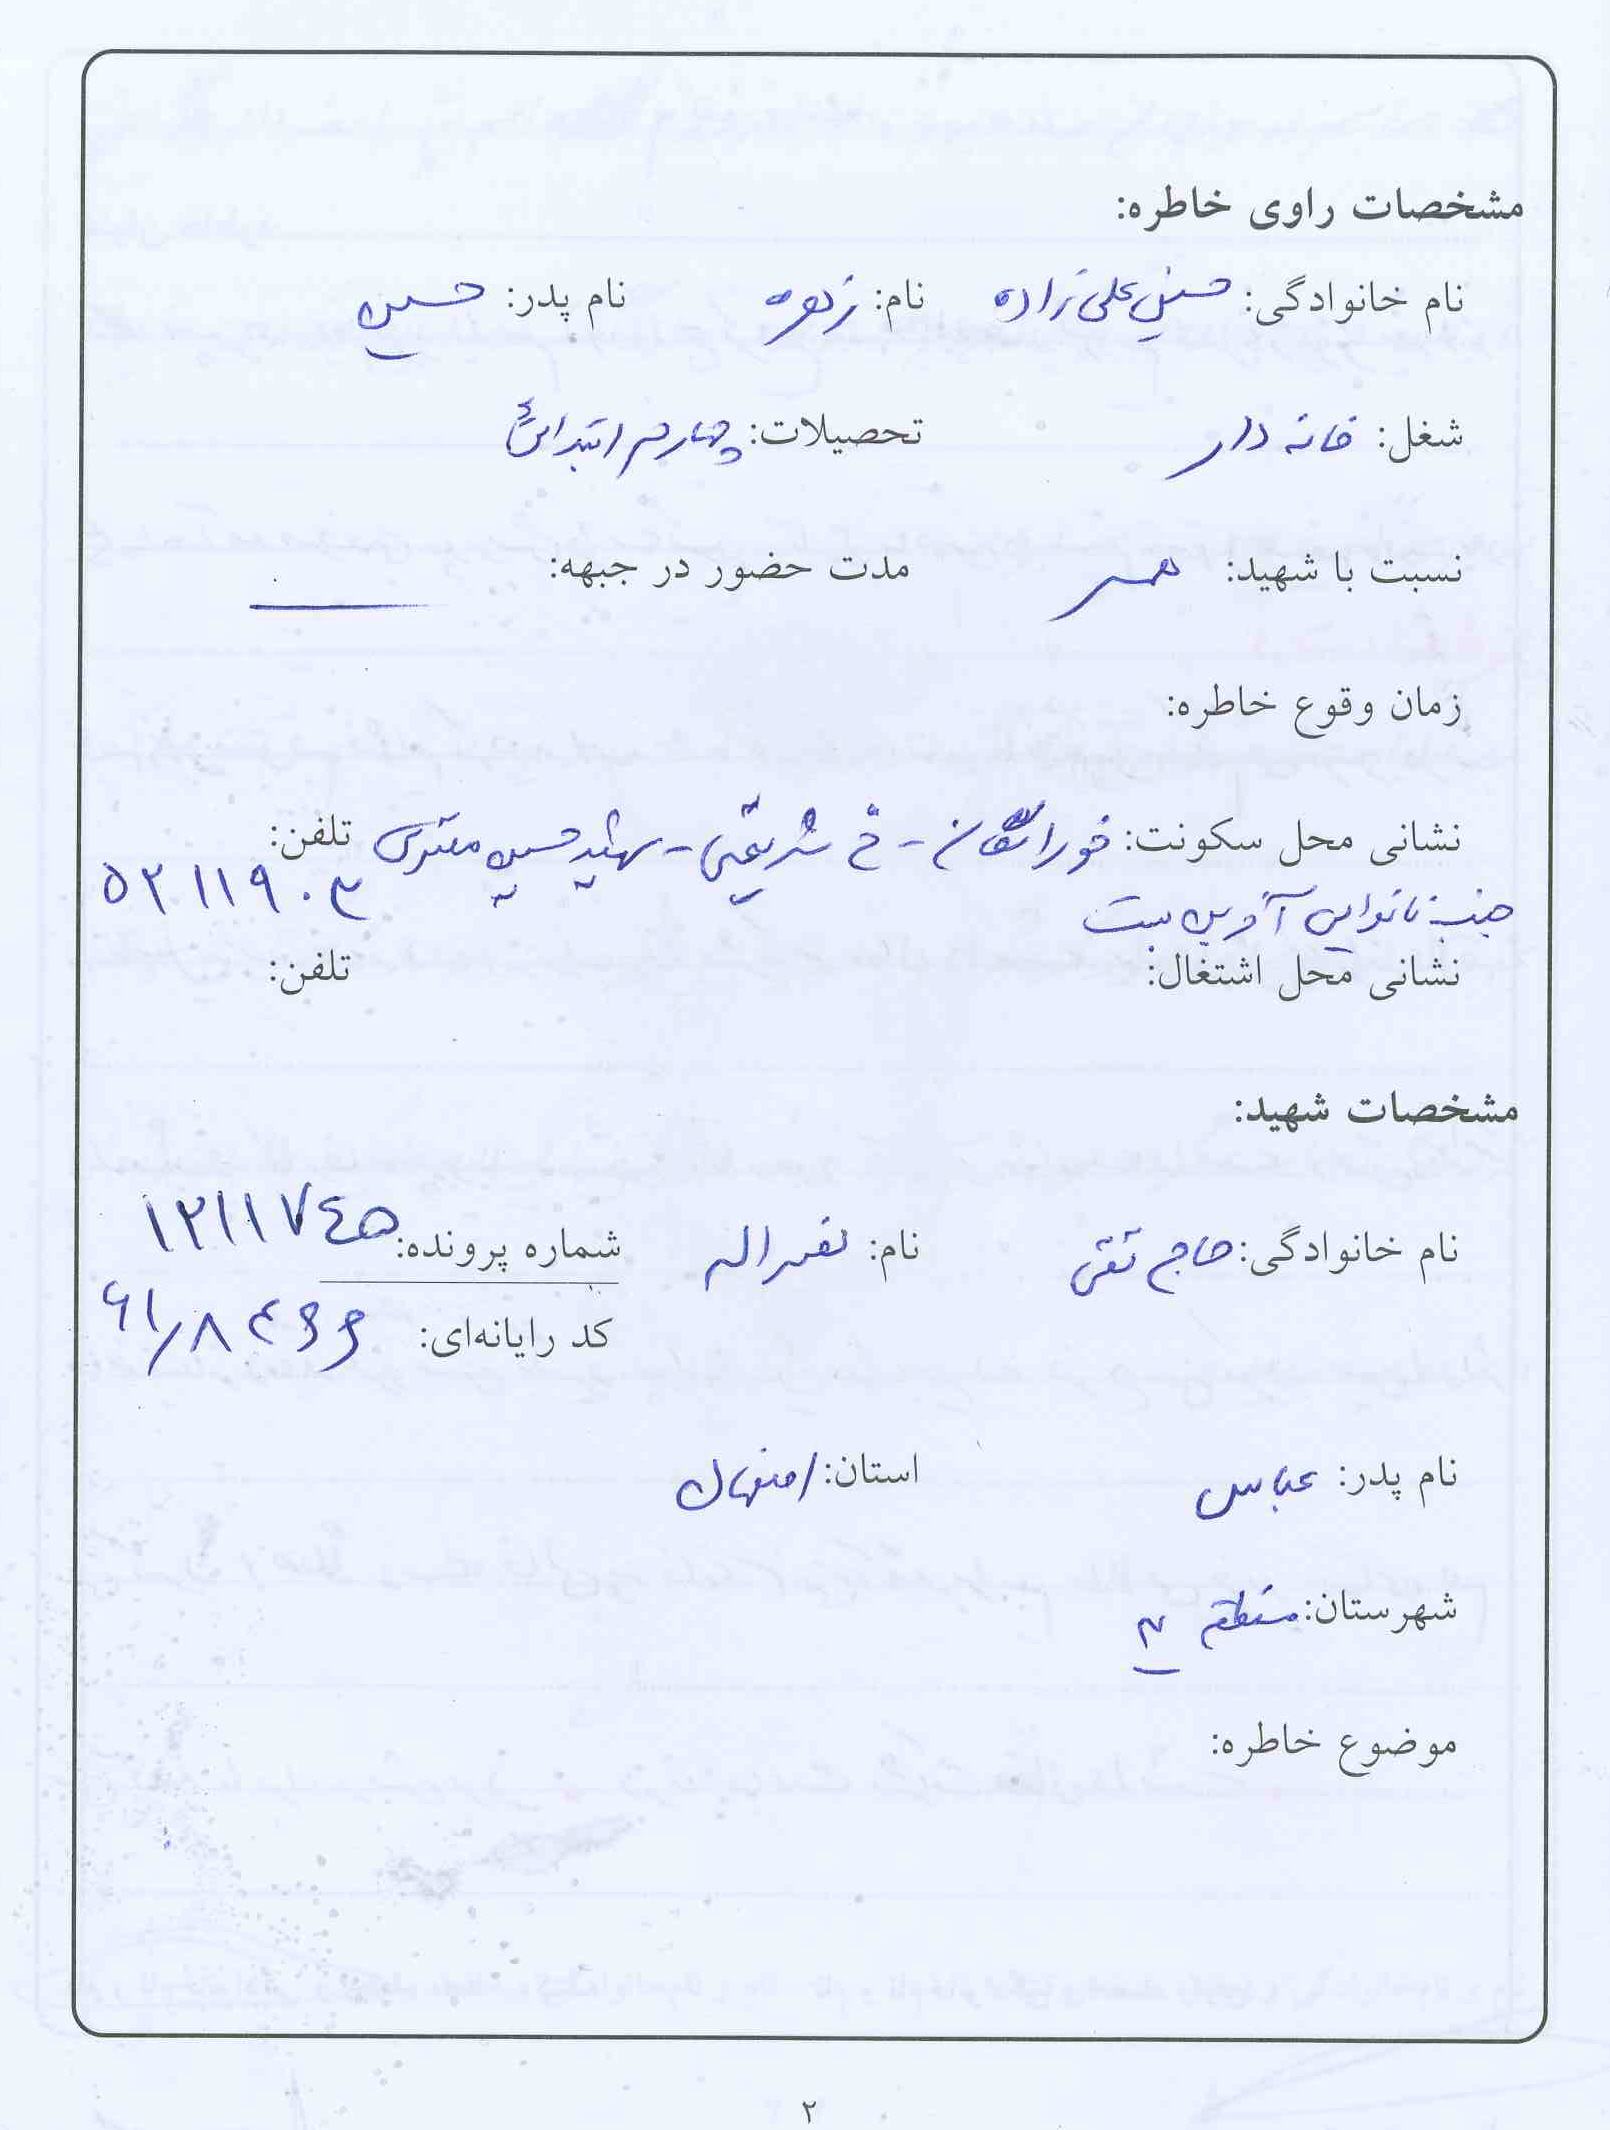 مشخصات راوی خاطره:
نام خانوادگی: حسینعلی زاده نام: زهره نام پدر: حسین
شغل: خانه دار تحصیلات: چهارم ابتدائی
نسبت با شهید: همسر مدت حضور در جبهه: ــــ
زمان وقوع خاطره:
نشانی محل سکونت: خوراسگان - خ شریعتی - شهید حسین تلفن:
جنب نانوایی آ بن بست ۵۲۱۱۹۰۳
نشانی محل اشتغال: تلفن:
مشخصات شهید:
نام خانوادگی: حاج تقی نام: نصراله شماره پرونده: ۱۲۱۱۷۴۵
کد رایانه‌ای:
نام پدر: عباس استان: اصفهان
شهرستان: منطقه ۲
موضوع خاطره:
۲